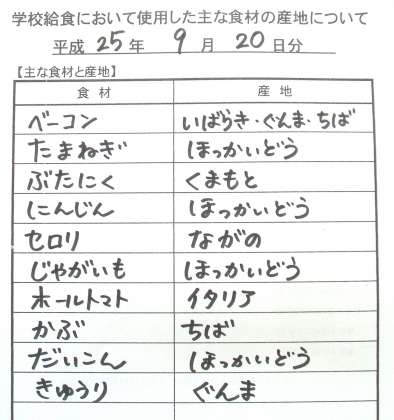 学校給食において使用した主な食材の産地について
平成 25 年 9 月 20 日分
【主な食材と産地】
食材 産地
ベーコン いばらき・ぐんま・ちば
たまねぎ ほっかいどう
ぶたにく くまもと
にんじん ほっかいどう
セロリ ながの
じゃがいも ほっかいどう
ホールトマト イタリア
かぶ ちば
だいこん ほっかいどう
きゅうり ぐんま